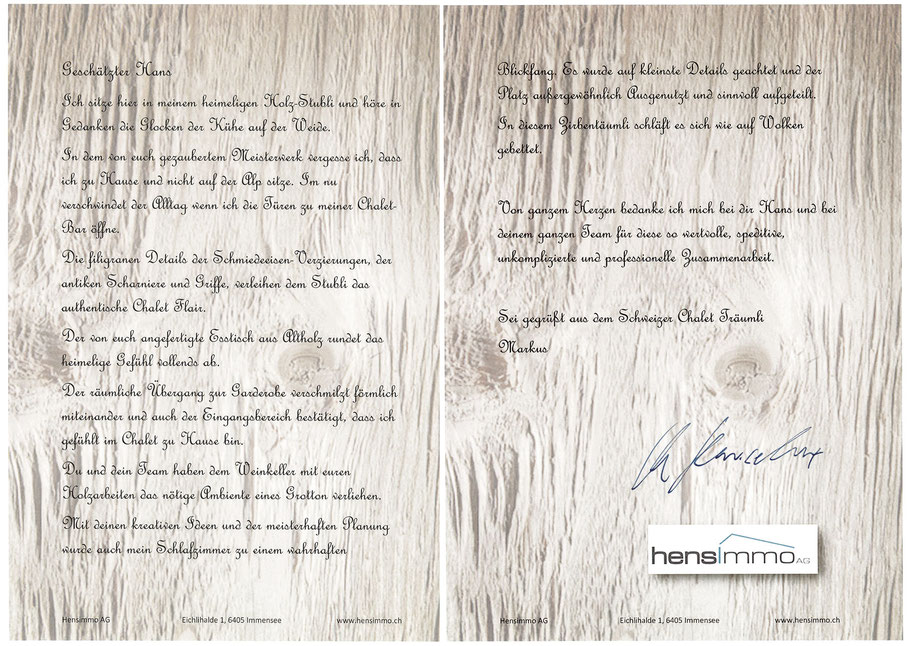 Geschätzter Hans
Ich sitze hier in meinem heimeligen Holz-Stubli und höre in
Gedanken die Glocken der Kühe auf der Weide.
In dem von euch gezaubertem Meisterwerk vergesse ich, dass
ich zu Hause und nicht auf der Alp sitze. Im nu
verschwindet der Alltag wenn ich die Türen zu meiner Chalet-
Bar öffne.
Die filigranen Details der Schmiedeeisen-Verzierungen, der
antiken Scharniere und Griffe, verleihen dem Stubli das
authentische Chalet Flair.
Der von euch angefertigte Esstisch aus Altholz rundet das
heimelige Gefühl vollends ab.
Der räumliche Übergang zur Garderobe verschmilzt förmlich
miteinander und auch der Eingangsbereich bestätigt, dass ich
gefühlt im Chalet zu Hause bin.
Du und dein Team haben dem Weinkeller mit euren
Holzarbeiten das nötige Ambiente eines Grotton verliehen.
Mit deinen kreativen Ideen und der meisterhaften Planung
wurde auch mein Schlafzimmer zu einem wahrhaften
Hensimmo AG Eichlihalde 1, 6405 Immensee www.hensimmo.ch
Blickfang. Es wurde auf kleinste Details geachtet und der
Platz außergewöhnlich Ausgenutzt und sinnvoll aufgeteilt.
In diesem Zirbentäumli schläft es sich wie auf Wolken
gebettet.
Von ganzem Herzen bedanke ich mich bei dir Hans und bei
deinem ganzen Team für diese so wertvolle, speditive,
unkomplizierte und professionelle Zusammenarbeit.
Sei gegrüßt aus dem Schweizer Chalet Träumli
Markus
hensimmo AG
Hensimmo AG Eichlihalde 1, 6405 Immensee www.hensimmo.ch